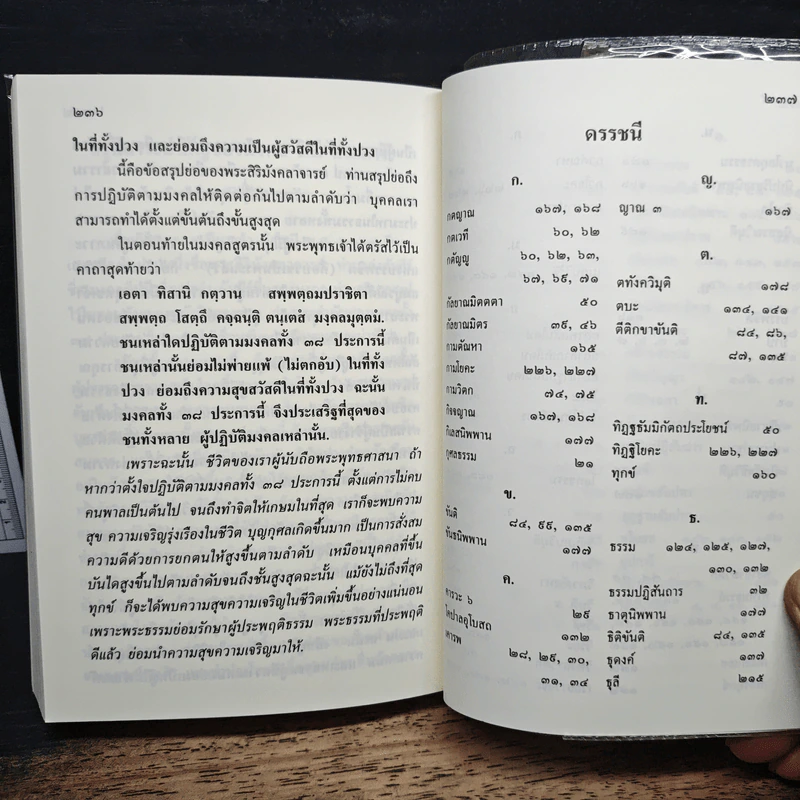 ๒๓๖
ในที่ทั้งปวง และย่อมถึงความเป็นผู้สวัสดีในที่ทั้งปวง
นี้คือข้อสรุปย่อของพระสิริมังคลาจารย์ ท่านสรุปย่อถึง
การปฏิบัติตามมงคลให้ติดต่อกันไปตามลำดับว่า บุคคลเรา
สามารถทำได้ตั้งแต่ขั้นต้นถึงขั้นสูงสุด
ในตอนท้ายในมงคลสูตรนั้น พระพุทธเจ้าได้ตรัสไว้เป็น
คาถาสุดท้ายว่า
เอตา ทิสานิ กตฺวาน สพฺพตฺถมปราชิตา
สพฺพตฺถ โสตฺถึ คจฺฉนฺติ ตนฺเตสํ มงฺคลมุตฺตมํ.
ชนเหล่าใดปฏิบัติตามมงคลทั้ง ๓๘ ประการนี้
ชนเหล่านั้นย่อมไม่พ่ายแพ้ (ไม่ตกอับ) ในที่ทั้ง
ปวง ย่อมถึงความสุขสวัสดีในที่ทั้งปวง ฉะนั้น
มงคลทั้ง ๓๘ ประการนี้ จึงประเสริฐที่สุดของ
ชนทั้งหลาย ผู้ปฏิบัติมงคลเหล่านั้น.
เพราะฉะนั้น ชีวิตของเราผู้นับถือพระพุทธศาสนา ถ้า
หากว่าตั้งใจปฏิบัติตามมงคลทั้ง ๓๘ ประการนี้ ตั้งแต่การไม่คบ
คนพาลเป็นต้นไป จนถึงทำจิตให้เกษมในที่สุด เราก็จะพบความ
สุข ความเจริญรุ่งเรืองในชีวิต บุญกุศลเกิดขึ้นมาก เป็นการสั่งสม
ความดีด้วยการยกตนให้สูงขึ้นตามลำดับ เหมือนบุคคลที่ขึ้น
บันไดสูงขึ้นไปตามลำดับจนถึงชั้นสูงสุดฉะนั้น แม้ยังไม่ถึงที่สุด
ทุกข์ ก็จะได้พบความสุขความเจริญในชีวิตเพิ่มขึ้นอย่างแน่นอน
เพราะพระธรรมย่อมรักษาผู้ประพฤติธรรม พระธรรมที่ประพฤติ
ดีแล้ว ย่อมนำความสุขความเจริญมาให้.
๒๓๗
ดรรชนี
ก.
กตญาณ ๑๖๗, ๑๖๘
กตเวที ๖๐, ๖๒
กตัญญู ๖๐, ๖๒, ๖๓,
๖๗, ๖๙, ๗๑
กัลยาณมิตตตา ๕๐
กัลยาณมิตร ๓๙, ๔๖
กามตัณหา ๑๖๕
กามโยคะ ๒๒๖, ๒๒๗
กามวิตก ๗๔, ๗๕
กิจจญาณ ๑๖๗, ๑๖๘
กิเลสนิพพาน ๑๗๗
กุศลธรรม ๒๑
ข.
ขันติ ๘๔, ๙๙, ๑๓๕
ขันธนิพพาน ๑๗๗
ค.
คารวะ ๖ ๒๙
โคปาลอุโบสถ ๑๓๒
เคารพ ๒๘, ๒๙, ๓๐,
๓๑, ๓๔
ญ.
ญาณ ๓ ๑๖๗
ต.
ตทังควิมุติ ๑๗๘
ตบะ ๑๓๔, ๑๔๑
ตีติกขาขันติ ๘๔, ๘๖,
๘๗, ๑๓๕
ท.
ทิฏฐธัมมิกัตถประโยชน์ ๕๐
ทิฏฐิโยคะ ๒๒๖, ๒๒๗
ทุกข์ ๑๖๐
ธ.
ธรรม ๑๒๔, ๑๒๕, ๑๒๗,
๑๓๐, ๑๓๒
ธรรมปฏิสันถาร ๓๒
ธาตุนิพพาน ๑๗๗
ธิติขันติ ๘๔, ๑๓๕
ธุดงค์ ๑๓๗
ธุลี ๒๑๕